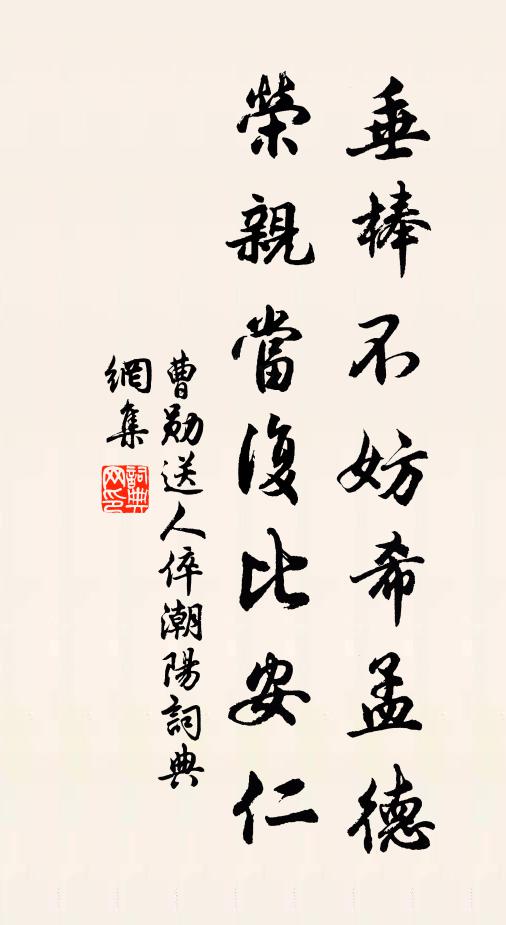 垂棒不妨希孟德
榮親當復比安仁
曹勛送人倅潮陽詞典
網集
詞典
网印